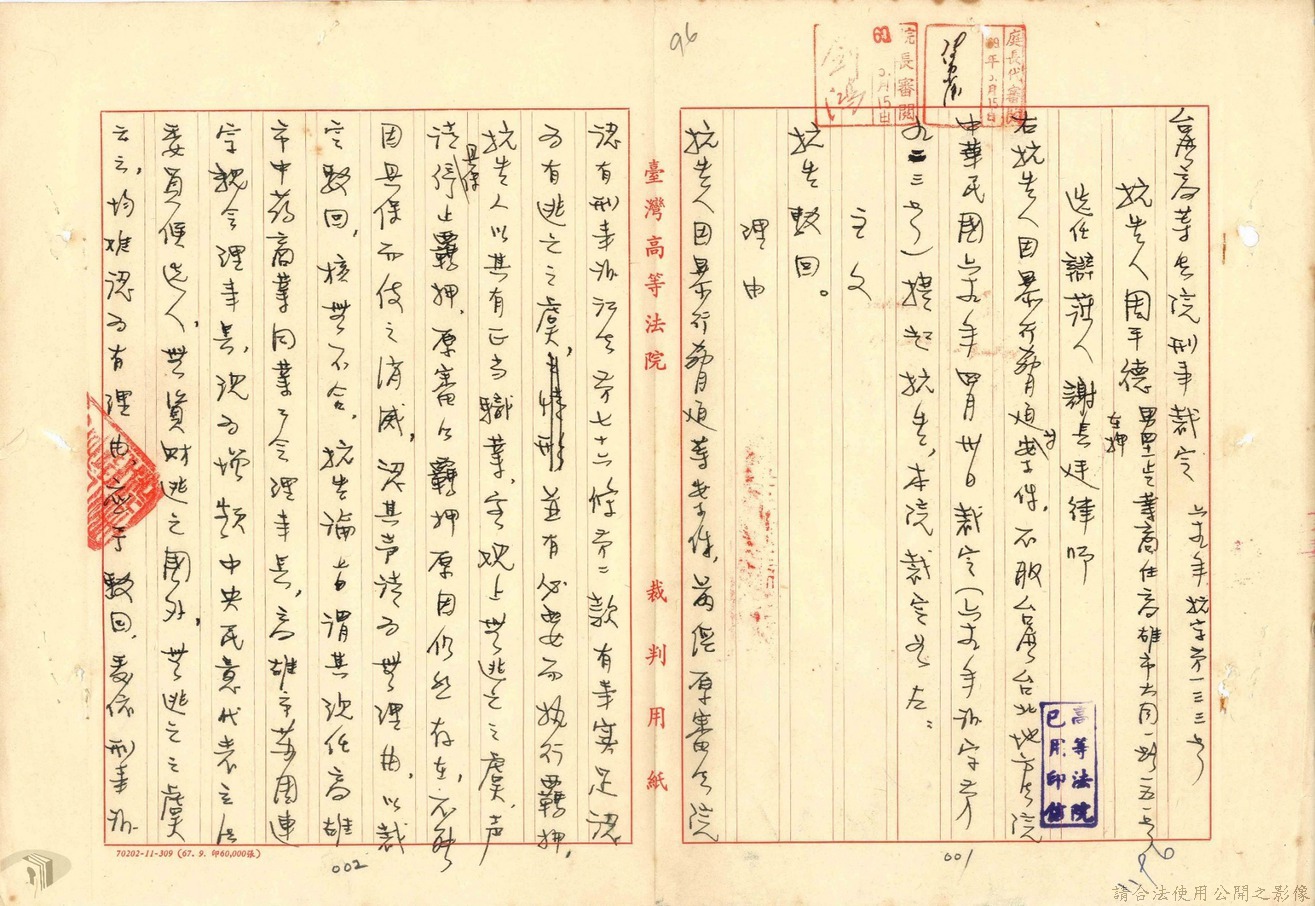 96
庭長代審閱
69年5月15日
院長審閱
69 5月15日
台灣高等法院刑事裁定 六十九年抗字第一三三號
抗告人周平德 男四十七歲業商住高雄市大同一路五一號
在押
選任辯護人 謝長廷律師
右抗告人因暴行脅迫等案件,不服台灣台北地方法院
中華民國六十九年四月卅日裁定(六十九年訴字第
九二三號)提起抗告,本院裁定如左:
主文
抗告駁回。
理由
抗告人因暴行脅迫等案件,前經原審法院
高等法院
已用印信
001
臺灣高等法院 裁判用紙
認有刑事訴訟法第七十六條第二款有事實足認
為有逃亡之虞,並有必要而執行羈押,
抗告人以其有正當職業,客觀上無逃亡之虞,聲
請具保停止羈押,原審以羈押原因仍然存在,不能
因具保而使之消滅,認其聲請為無理由,以裁
定駁回,核無不合。抗告論旨謂其現任高雄
市中藥商業同業公會理事長,高雄市苓周連
宗親會理事長,現為增額中央民意代表立法
委員候選人,無資財逃亡國外,無逃亡之虞
云云,均難認為有理由,應予駁回,爰依刑事訴
70202-11-309 (67. 9. 印60,000張)
002
請合法使用公開之影像